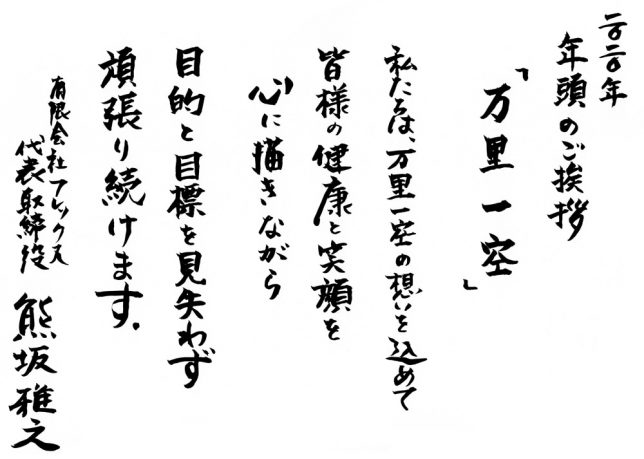 二〇二〇年
年頭のご挨拶
「万里一空」
私たちは、万里一空の想いを込めて
皆様の健康と笑顔を
心に描きながら
目的と目標を見失わず
頑張り続けます。
有限会社フレックス
代表取締役 熊坂雅之